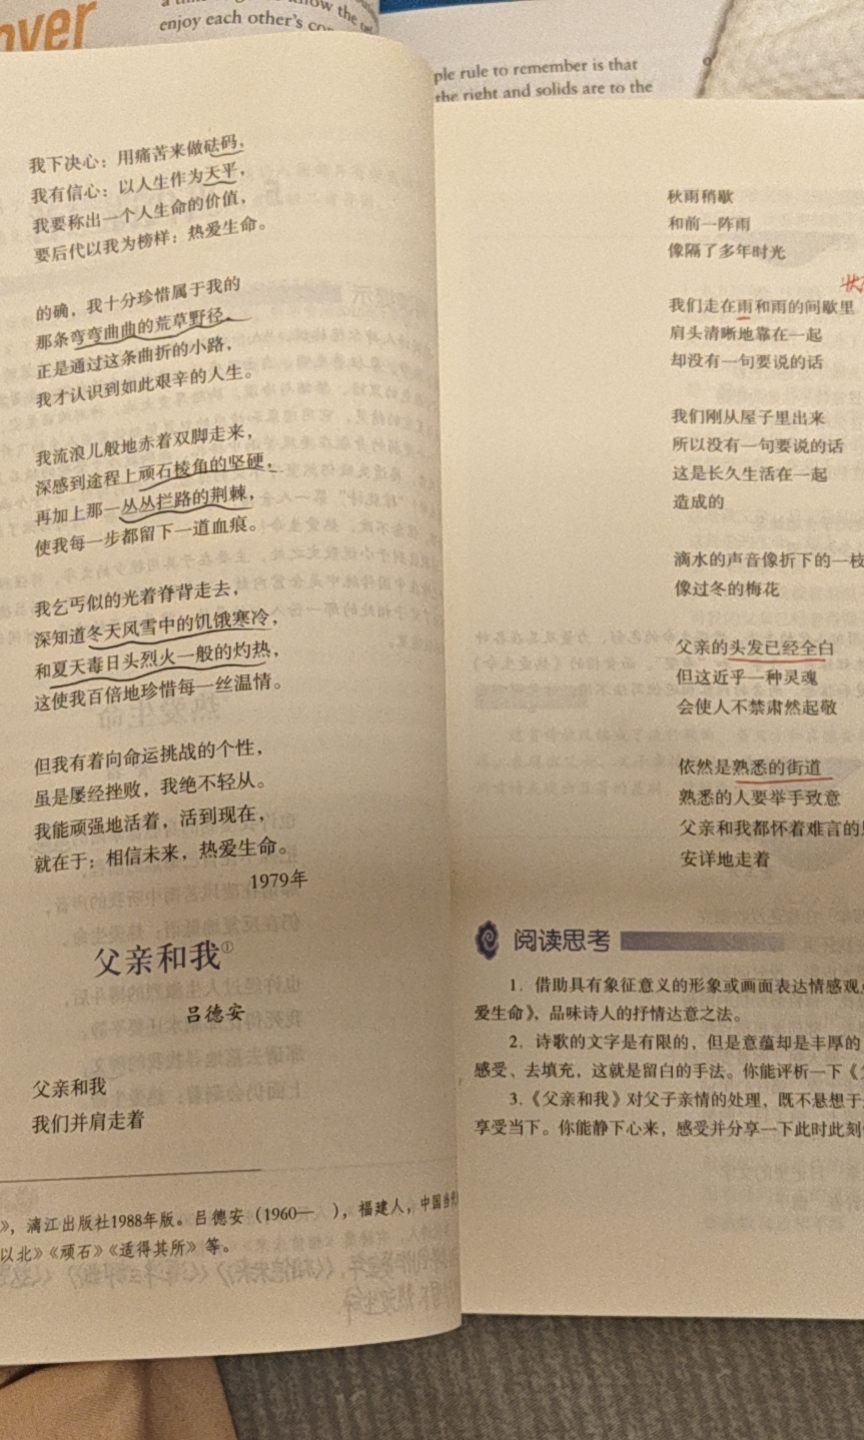 over
enjoy each other's
ple rule to remember is that
the right and solids are to the
我下决心：用痛苦来做砝码，
我有信心：以人生作为天平，
我要称出一个人生命的价值，
要后代以我为榜样：热爱生命。
的确，我十分珍惜属于我的
那条弯弯曲曲的荒草野径，
正是通过这条曲折的小路，
我才认识到如此艰辛的人生。
我流浪儿般地赤着双脚走来，
深感到途程上顽石棱角的坚硬，
再加上那一丛丛拦路的荆棘，
使我每一步都留下一道血痕。
我乞丐似的光着脊背走去，
深知道冬天风雪中的饥饿寒冷，
和夏天毒日头烈火一般的灼热，
这使我百倍地珍惜每一丝温情。
但我有着向命运挑战的个性，
虽是屡经挫败，我绝不轻从。
我能顽强地活着，活到现在，
就在于：相信未来，热爱生命。
1979年
父亲和我①
吕德安
父亲和我
我们并肩走着
》，漓江出版社1988年版。吕德安（1960— ），福建人，中国当代
以北》《顽石》《适得其所》等。
秋雨稍歇
和前一阵雨
像隔了多年时光
我们走在雨和雨的间歇里
肩头清晰地靠在一起
却没有一句要说的话
我们刚从屋子里出来
所以没有一句要说的话
这是长久生活在一起
造成的
滴水的声音像折下的一枝
像过冬的梅花
父亲的头发已经全白
但这近乎一种灵魂
会使人不禁肃然起敬
依然是熟悉的街道
熟悉的人要举手致意
父亲和我都怀着难言的
安详地走着
阅读思考
1. 借助具有象征意义的形象或画面表达情感观
爱生命》，品味诗人的抒情达意之法。
2. 诗歌的文字是有限的，但是意蕴却是丰厚的
感受、去填充，这就是留白的手法。你能评析一下《
3.《父亲和我》对父子亲情的处理，既不悬想于
享受当下。你能静下心来，感受并分享一下此时此刻